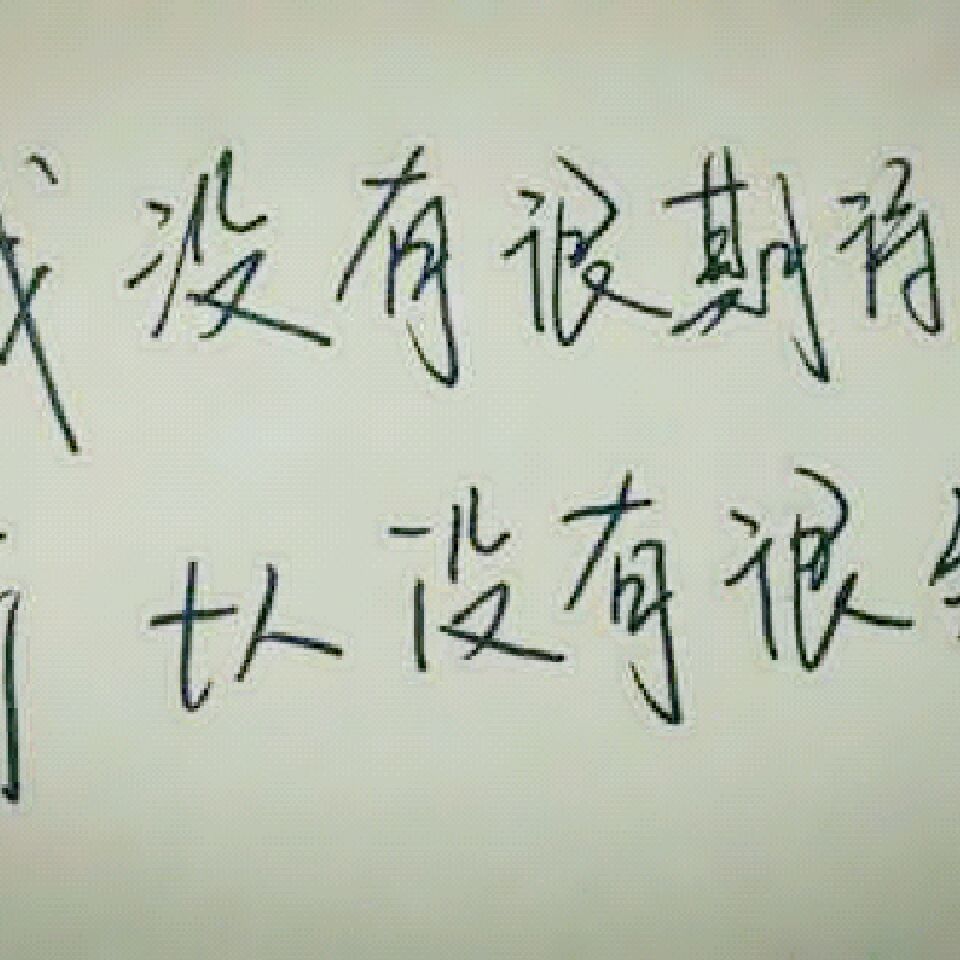 我没有很期待
所以没有很